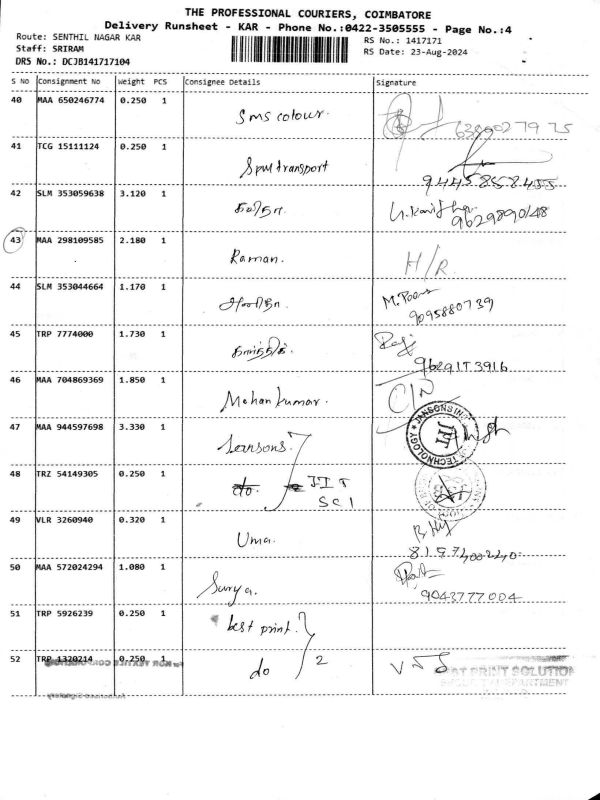 THE PROFESSIONAL COURIERS, COIMBATORE
Delivery Runsheet - KAR - Phone No.:0422-3505555 - Page No.:4
Route: SENTHIL NAGAR KAR
Staff: SRIRAM
DRS No.: DCJB141717104
RS No.: 1417171
RS Date: 23-Aug-2024
S No Consignment No Weight PCS Consignee Details Signature
40 MAA 650246774 0.250 1 Sms colour.
41 TCG 15111124 0.250 1 Spm transport 9445858455
42 SLM 353059638 3.120 1 9629890148
43 MAA 298109585 2.180 1 Raman. H/R
44 SLM 353044664 1.170 1 9095880739
45 TRP 7774000 1.730 1 9629173916
46 MAA 704869369 1.850 1 Mohan kumar.
47 MAA 944597698 3.330 1 Jansons.
48 TRZ 54149305 0.250 1 do.
49 VLR 3260940 0.320 1 Uma.
50 MAA 572024294 1.080 1 Surya. 9043777004
51 TRP 5926239 0.250 1 best print.
52 TRP 1320214 0.250 1 do 2
PRINT SOLUTION